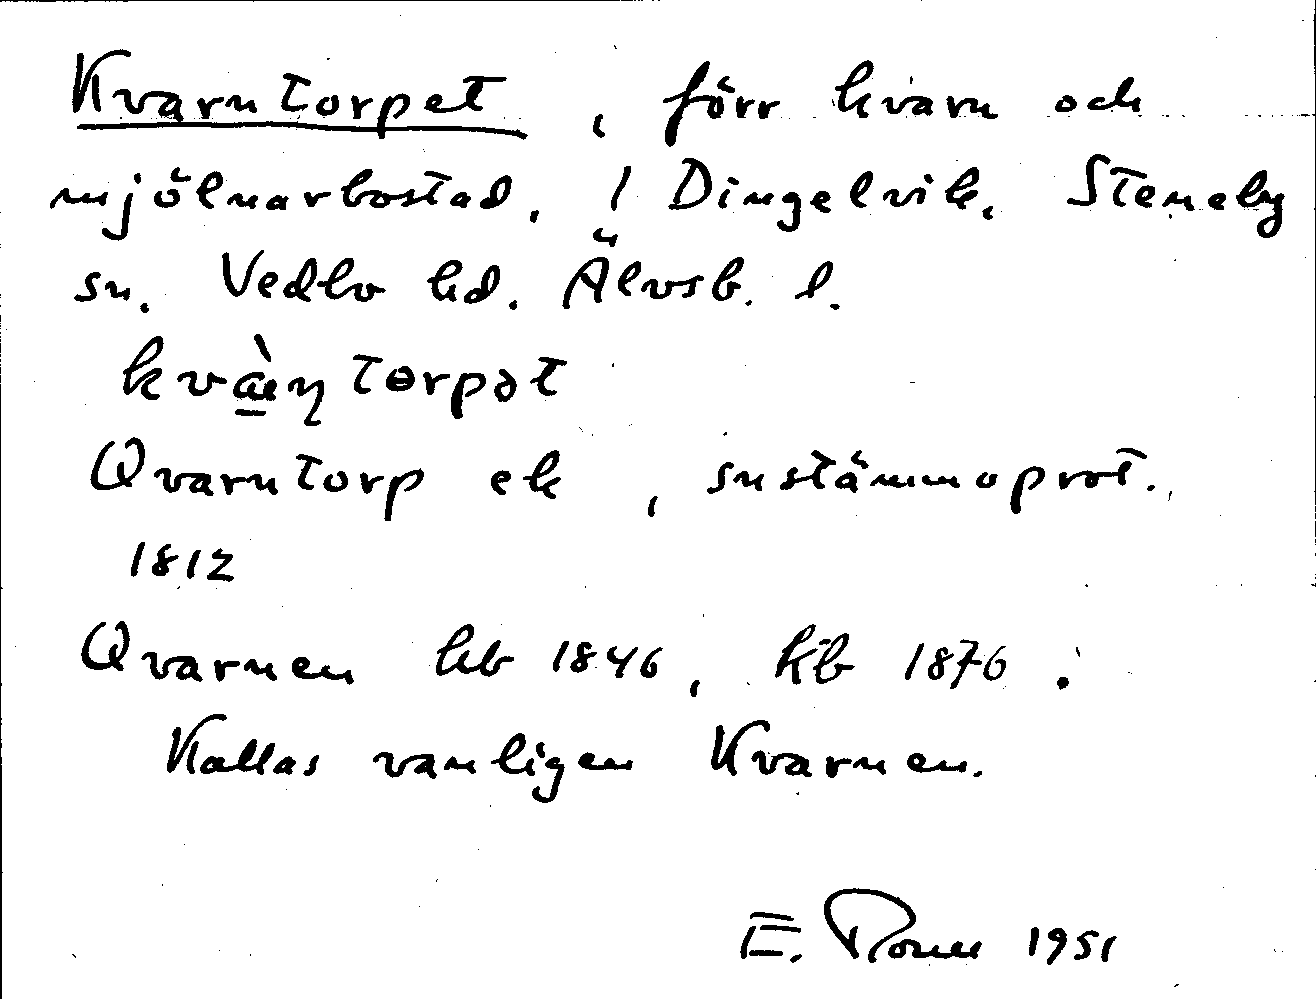 Kvarntorpet, förr kvarn och
mjölnarbostad, i Dingelvik, Steneby
sn. Vedbo hd. Älvsb. l.
Qvarntorp ek, sustämmoprot.
1812
Qvarnen hb 1846, kb 1876.
Kallas vanligen Kvarnen.
E. 1951